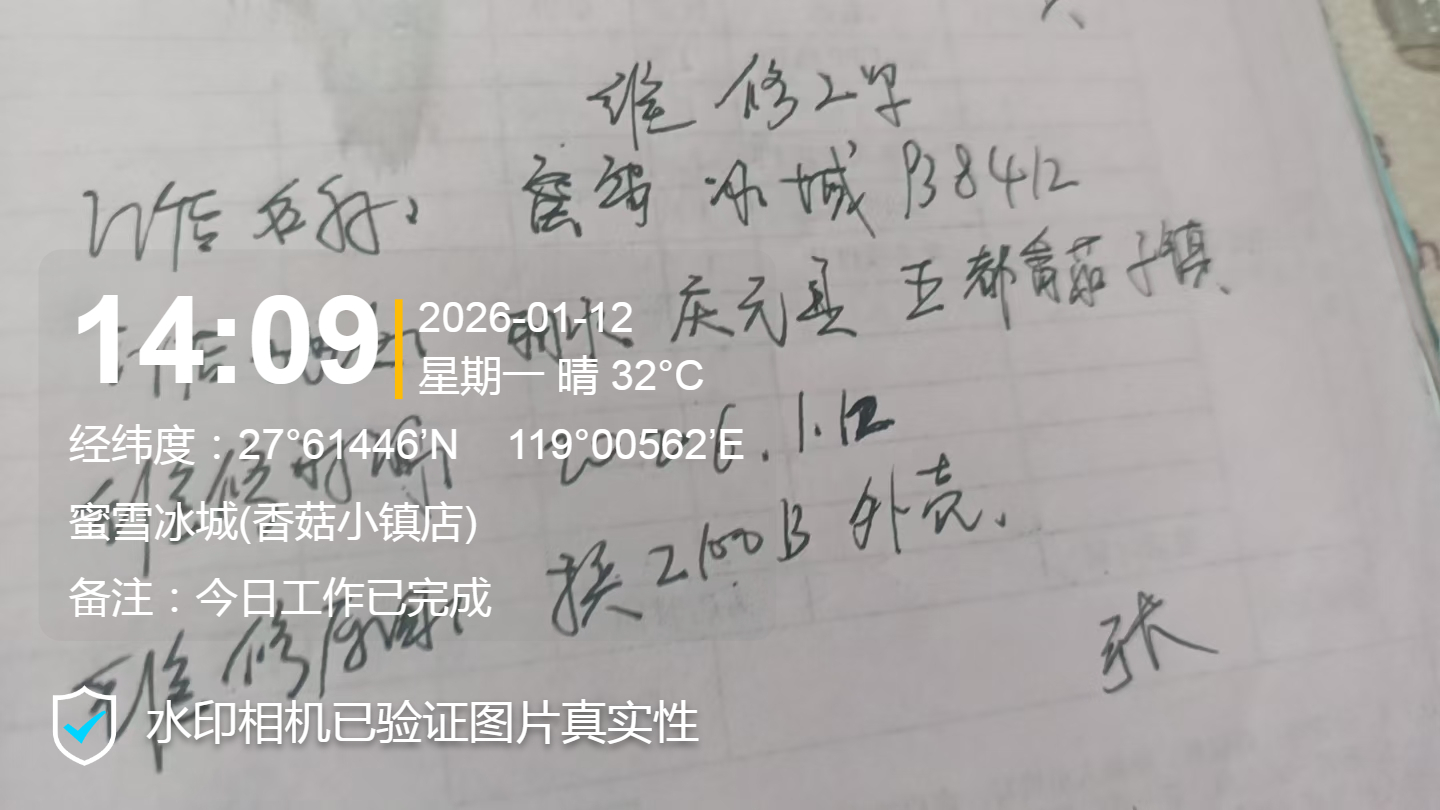 维修工单
门店名称: 蜜雪冰城 B38412
丽水 庆元县 五都香菇子镇
14:09
2026-01-12
星期一 晴 32°C
经纬度：27°61446’N 119°00562’E
维修时间 2026.1.12
蜜雪冰城(香菇小镇店)
换2100B外壳.
备注：今日工作已完成
维修
张
水印相机已验证图片真实性